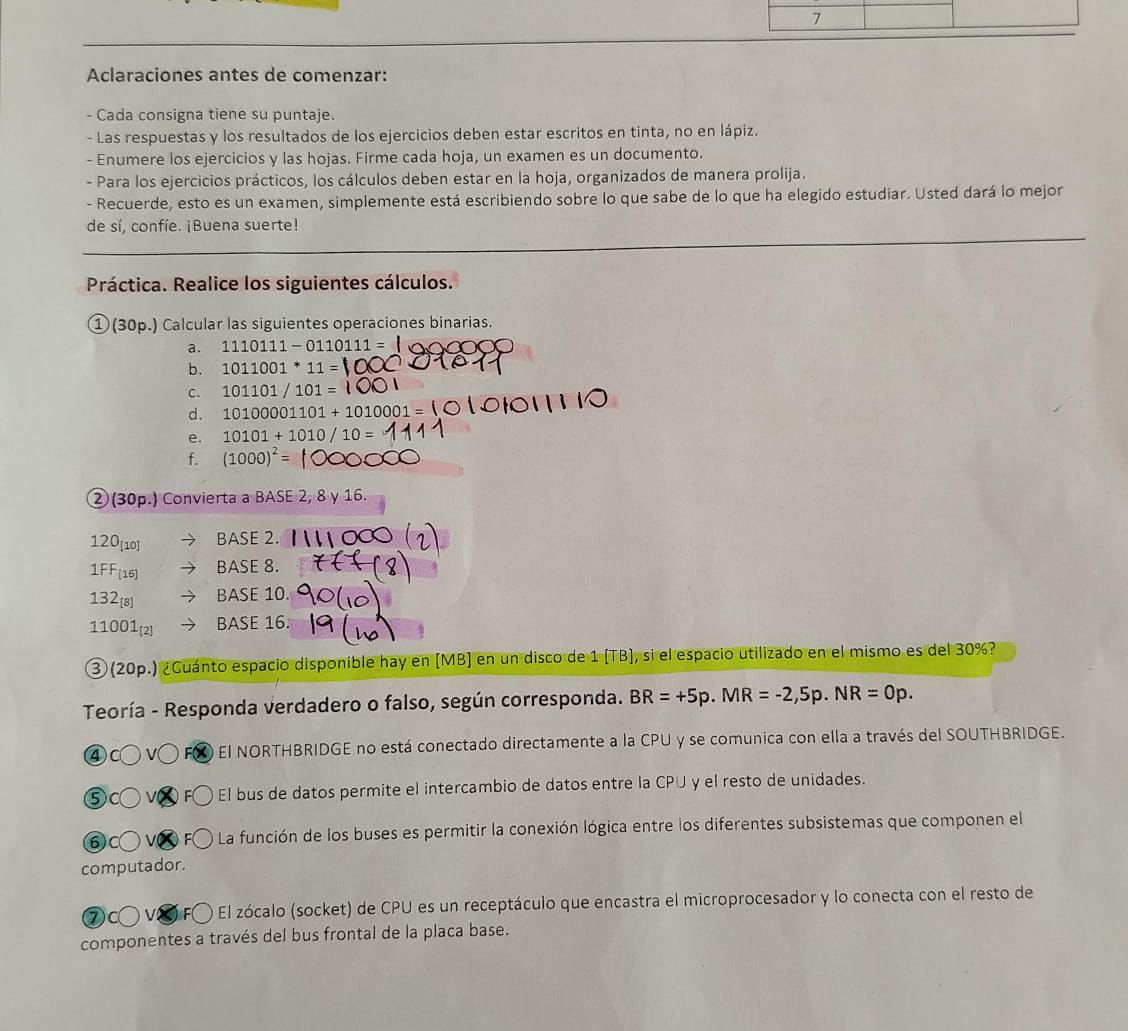 7
Aclaraciones antes de comenzar:
- Cada consigna tiene su puntaje.
- Las respuestas y los resultados de los ejercicios deben estar escritos en tinta, no en lápiz.
- Enumere los ejercicios y las hojas. Firme cada hoja, un examen es un documento.
- Para los ejercicios prácticos, los cálculos deben estar en la hoja, organizados de manera prolija.
- Recuerde, esto es un examen, simplemente está escribiendo sobre lo que sabe de lo que ha elegido estudiar. Usted dará lo mejor
de sí, confíe. ¡Buena suerte!
Práctica. Realice los siguientes cálculos.
①(30p.) Calcular las siguientes operaciones binarias.
a. 1110111 – 0110111 = 1000000
b. 1011001 * 11 = 1000 01011
c. 101101 / 101 = 1001
d. 10100001101 + 1010001 = 10101011110
e. 10101 + 1010 / 10 = 1111
f. (1000)² = 1000000
②(30p.) Convierta a BASE 2, 8 y 16.
120[10] → BASE 2. 1111000 (2)
1FF[16] → BASE 8. 777(8)
132[8] → BASE 10. 90(10)
11001[2] → BASE 16. 19 (16)
③(20p.) ¿Cuánto espacio disponible hay en [MB] en un disco de 1 [TB], si el espacio utilizado en el mismo es del 30%?
Teoría - Responda verdadero o falso, según corresponda. BR = +5p. MR = -2,5p. NR = 0p.
④ C○ V○ FX El NORTHBRIDGE no está conectado directamente a la CPU y se comunica con ella a través del SOUTHBRIDGE.
⑤ C○ VX F○ El bus de datos permite el intercambio de datos entre la CPU y el resto de unidades.
⑥ C○ VX F○ La función de los buses es permitir la conexión lógica entre los diferentes subsistemas que componen el
computador.
⑦ C○ VX F○ El zócalo (socket) de CPU es un receptáculo que encastra el microprocesador y lo conecta con el resto de
componentes a través del bus frontal de la placa base.